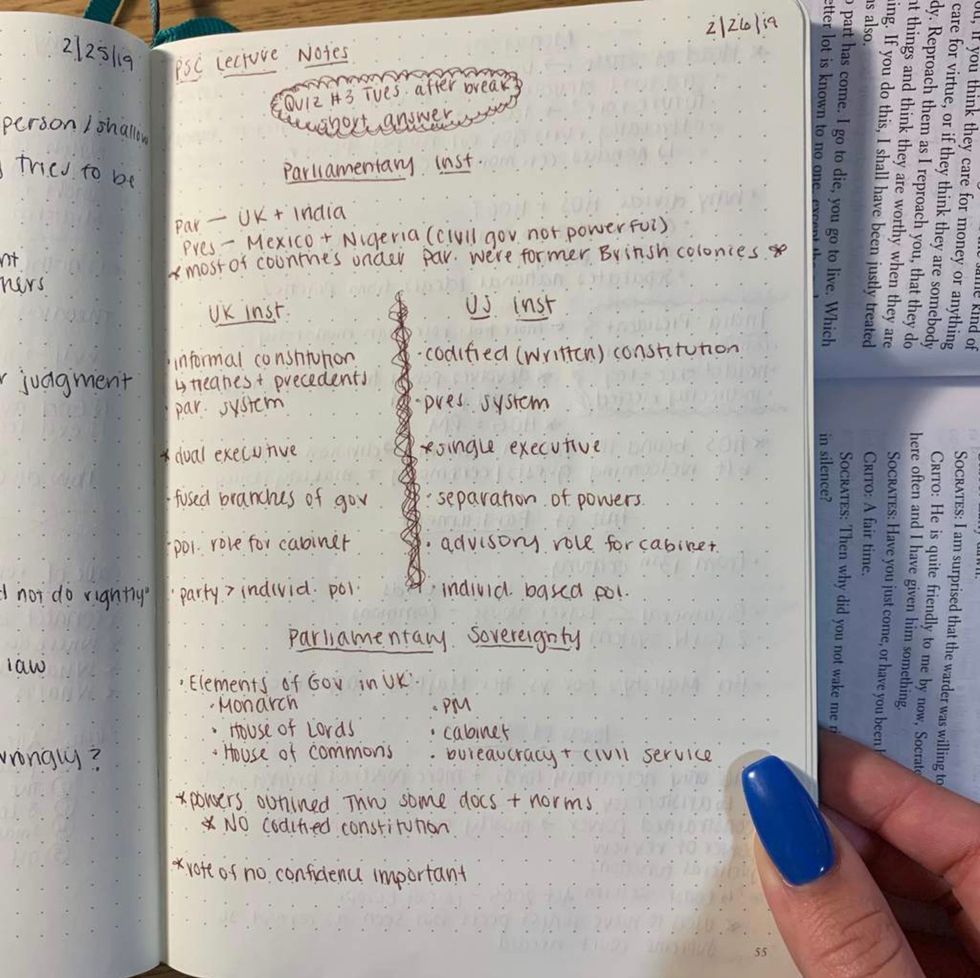 2/25/19
person / shallow
tried to be
hers
judgment
not do rightly"
law
wrongly?
2/26/19
PSC Lecture Notes
QUIZ #3 Tues. after break
short answer
Parliamentary Inst.
Par — UK + India
Pres — Mexico + Nigeria (civil gov not powerful)
*most of countries under Par. were former British colonies *
UK Inst.
· informal constitution
↳ treaties + precedents
· par. system
* dual executive
· fused branches of gov
· pol. role for cabinet
· party > individ. pol.
US Inst
· codified (written) constitution
· pres. system
* single executive
· separation of powers
· advisory role for cabinet
· individ. based pol.
Parliamentary Sovereignty
· Elements of Gov in UK:
· Monarch
· House of Lords
· House of commons
· PM
· cabinet
· bureaucracy + civil service
*powers outlined Thru some docs + norms
* NO codified constitution
*vote of no confidence important
55
care for virtue, or if they think they care for money or anything
dy. Reproach them as I reproach you, that they do
t things and think they are worthy when they are
ing. If you do this, I shall have been justly treated
s also.
part has come. I go to die, you go to live. Which
etter lot is known to no one, except
SOCRATES: I am surprised that the warder was willing to
CRITO: He is quite friendly to me by now, Socrate
here often and I have given him something.
SOCRATES: Have you just come, or have you been
CRITO: A fair time.
SOCRATES: Then why did you not wake me
in silence?